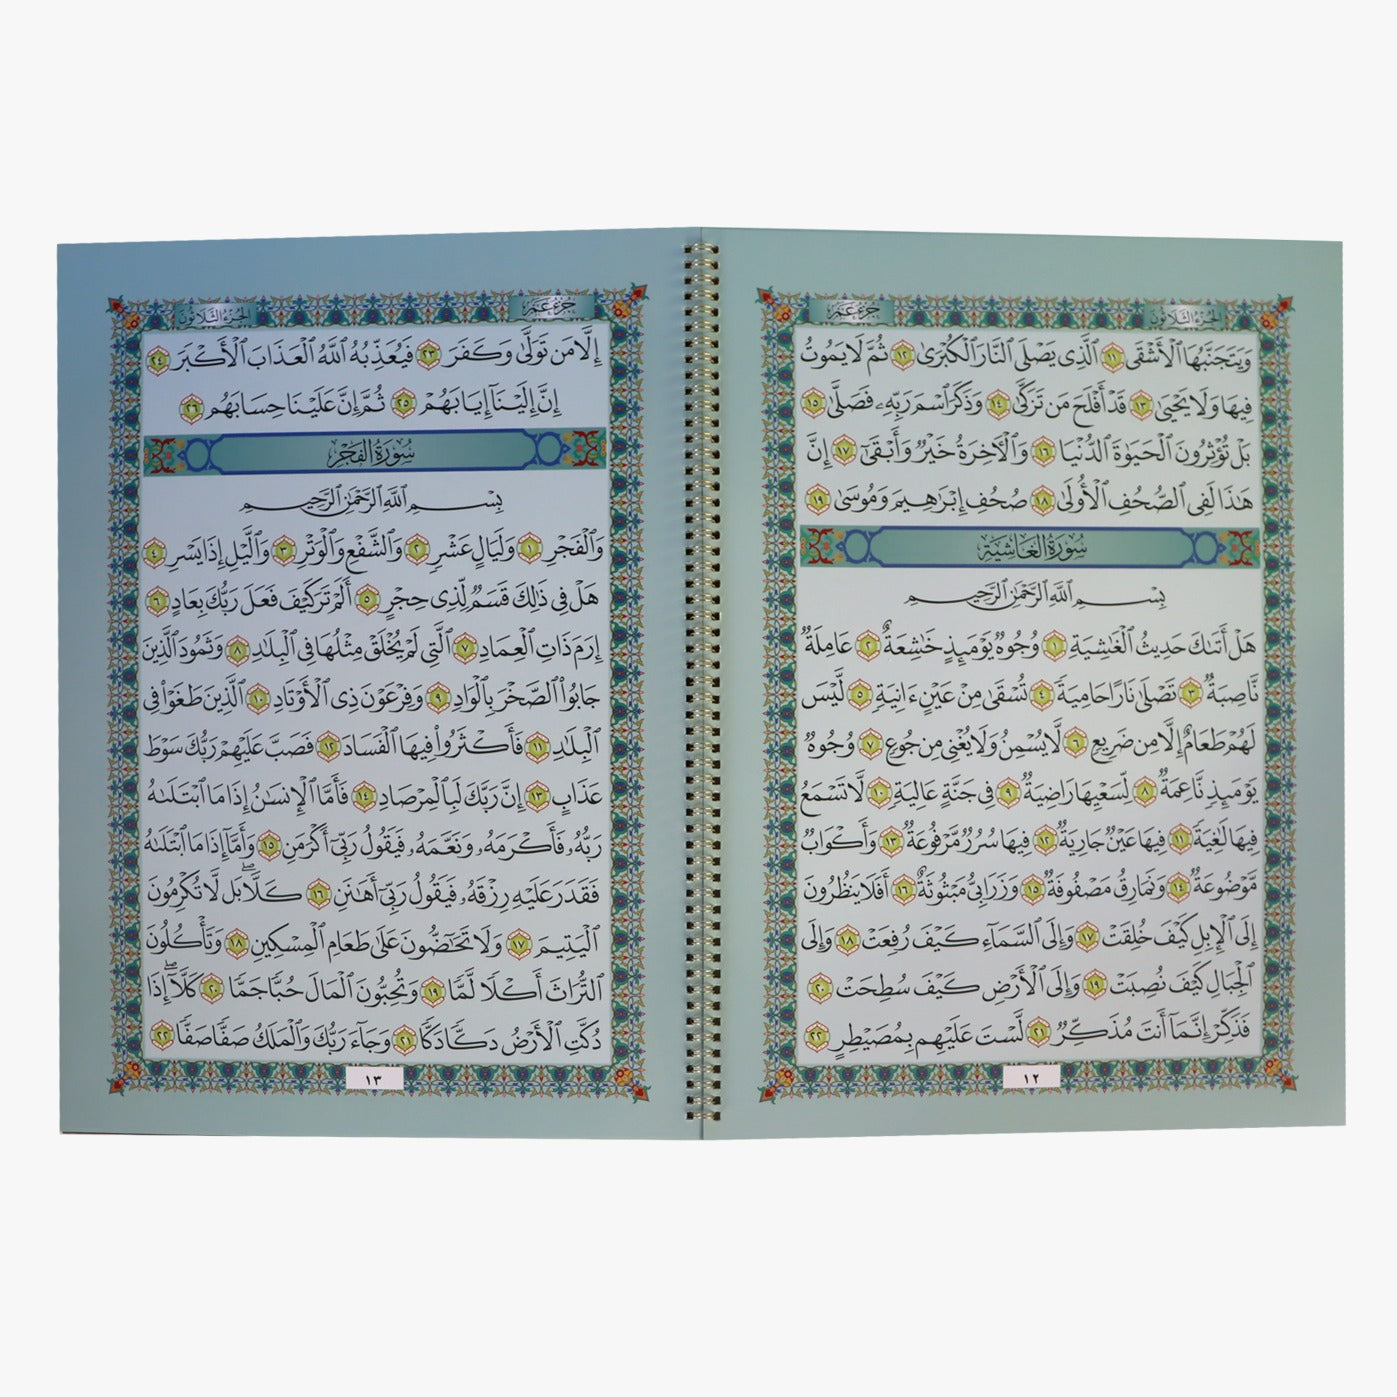 الجزء الثلاثون
جزء عم
وَيَتَجَنَّبُهَا ٱلْأَشْقَى ١١ ٱلَّذِى يَصْلَى ٱلنَّارَ ٱلْكُبْرَىٰ ١٢ ثُمَّ لَا يَمُوتُ
فِيهَا وَلَا يَحْيَىٰ ١٣ قَدْ أَفْلَحَ مَن تَزَكَّىٰ ١٤ وَذَكَرَ ٱسْمَ رَبِّهِۦ فَصَلَّىٰ ١٥
بَلْ تُؤْثِرُونَ ٱلْحَيَوٰةَ ٱلدُّنْيَا ١٦ وَٱلْأَخِرَةُ خَيْرٌ وَأَبْقَىٰٓ ١٧ إِنَّ
هَٰذَا لَفِى ٱلصُّحُفِ ٱلْأُولَىٰ ١٨ صُحُفِ إِبْرَٰهِيمَ وَمُوسَىٰ ١٩
سُورَةُ الغَاشِيَةِ
بِسْمِ ٱللَّهِ ٱلرَّحْمَٰنِ ٱلرَّحِيمِ
هَلْ أَتَىٰكَ حَدِيثُ ٱلْغَٰشِيَةِ ١ وُجُوهٌ يَوْمَئِذٍ خَٰشِعَةٌ ٢ عَامِلَةٌ
نَّاصِبَةٌ ٣ تَصْلَىٰ نَارًا حَامِيَةً ٤ تُسْقَىٰ مِنْ عَيْنٍ ءَانِيَةٍ ٥ لَّيْسَ
لَهُمْ طَعَامٌ إِلَّا مِن ضَرِيعٍ ٦ لَّا يُسْمِنُ وَلَا يُغْنِى مِن جُوعٍ ٧ وُجُوهٌ
يَوْمَئِذٍ نَّاعِمَةٌ ٨ لِّسَعْيِهَا رَاضِيَةٌ ٩ فِى جَنَّةٍ عَالِيَةٍ ١٠ لَّا تَسْمَعُ
فِيهَا لَٰغِيَةً ١١ فِيهَا عَيْنٌ جَارِيَةٌ ١٢ فِيهَا سُرُرٌ مَّرْفُوعَةٌ ١٣ وَأَكْوَابٌ
مَّوْضُوعَةٌ ١٤ وَنَمَارِقُ مَصْفُوفَةٌ ١٥ وَزَرَابِىُّ مَبْثُوثَةٌ ١٦ أَفَلَا يَنظُرُونَ
إِلَى ٱلْإِبِلِ كَيْفَ خُلِقَتْ ١٧ وَإِلَى ٱلسَّمَآءِ كَيْفَ رُفِعَتْ ١٨ وَإِلَى
ٱلْجِبَالِ كَيْفَ نُصِبَتْ ١٩ وَإِلَى ٱلْأَرْضِ كَيْفَ سُطِحَتْ ٢٠
فَذَكِّرْ إِنَّمَآ أَنتَ مُذَكِّرٌ ٢١ لَّسْتَ عَلَيْهِم بِمُصَيْطِرٍ ٢٢
١٢
جزء عم
الجزء الثلاثون
إِلَّا مَن تَوَلَّىٰ وَكَفَرَ ٢٣ فَيُعَذِّبُهُ ٱللَّهُ ٱلْعَذَابَ ٱلْأَكْبَرَ ٢٤
إِنَّ إِلَيْنَآ إِيَابَهُمْ ٢٥ ثُمَّ إِنَّ عَلَيْنَا حِسَابَهُم ٢٦
سُورَةُ الفَجْرِ
بِسْمِ ٱللَّهِ ٱلرَّحْمَٰنِ ٱلرَّحِيمِ
وَٱلْفَجْرِ ١ وَلَيَالٍ عَشْرٍ ٢ وَٱلشَّفْعِ وَٱلْوَتْرِ ٣ وَٱلَّيْلِ إِذَا يَسْرِ ٤
هَلْ فِى ذَٰلِكَ قَسَمٌ لِّذِى حِجْرٍ ٥ أَلَمْ تَرَ كَيْفَ فَعَلَ رَبُّكَ بِعَادٍ ٦
إِرَمَ ذَاتِ ٱلْعِمَادِ ٧ ٱلَّتِى لَمْ يُخْلَقْ مِثْلُهَا فِى ٱلْبِلَٰدِ ٨ وَثَمُودَ ٱلَّذِينَ
جَابُوا۟ ٱلصَّخْرَ بِٱلْوَادِ ٩ وَفِرْعَوْنَ ذِى ٱلْأَوْتَادِ ١٠ ٱلَّذِينَ طَغَوْا۟ فِى
ٱلْبِلَٰدِ ١١ فَأَكْثَرُوا۟ فِيهَا ٱلْفَسَادَ ١٢ فَصَبَّ عَلَيْهِمْ رَبُّكَ سَوْطَ
عَذَابٍ ١٣ إِنَّ رَبَّكَ لَبِٱلْمِرْصَادِ ١٤ فَأَمَّا ٱلْإِنسَٰنُ إِذَا مَا ٱبْتَلَىٰهُ
رَبُّهُۥ فَأَكْرَمَهُۥ وَنَعَّمَهُۥ فَيَقُولُ رَبِّىٓ أَكْرَمَنِ ١٥ وَأَمَّآ إِذَا مَا ٱبْتَلَىٰهُ
فَقَدَرَ عَلَيْهِ رِزْقَهُۥ فَيَقُولُ رَبِّىٓ أَهَٰنَنِ ١٦ كَلَّا ۖ بَل لَّا تُكْرِمُونَ
ٱلْيَتِيمَ ١٧ وَلَا تَحَٰٓضُّونَ عَلَىٰ طَعَامِ ٱلْمِسْكِينِ ١٨ وَتَأْكُلُونَ
ٱلتُّرَاثَ أَكْلًا لَّمًّا ١٩ وَتُحِبُّونَ ٱلْمَالَ حُبًّا جَمًّا ٢٠ كَلَّآ ۖ إِذَا
دُكَّتِ ٱلْأَرْضُ دَكًّا دَكًّا ٢١ وَجَآءَ رَبُّكَ وَٱلْمَلَكُ صَفًّا صَفًّا ٢٢
١٣